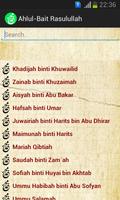 22:36
Ahlul-Bait Rasulullah
Search...
Khadijah binti Khuwailid
Zainab binti Khuzaimah
Aisyah binti Abu Bakar
Hafsah binti Umar
Juwairiah binti Harits bin Abu Dhirar
Maimunah binti Harits
Saudah binti Zam`ah
Sofiah binti Huyai bin Akhtab
Ummu Habibah binti Abu Sofyan
Ummu Salamah